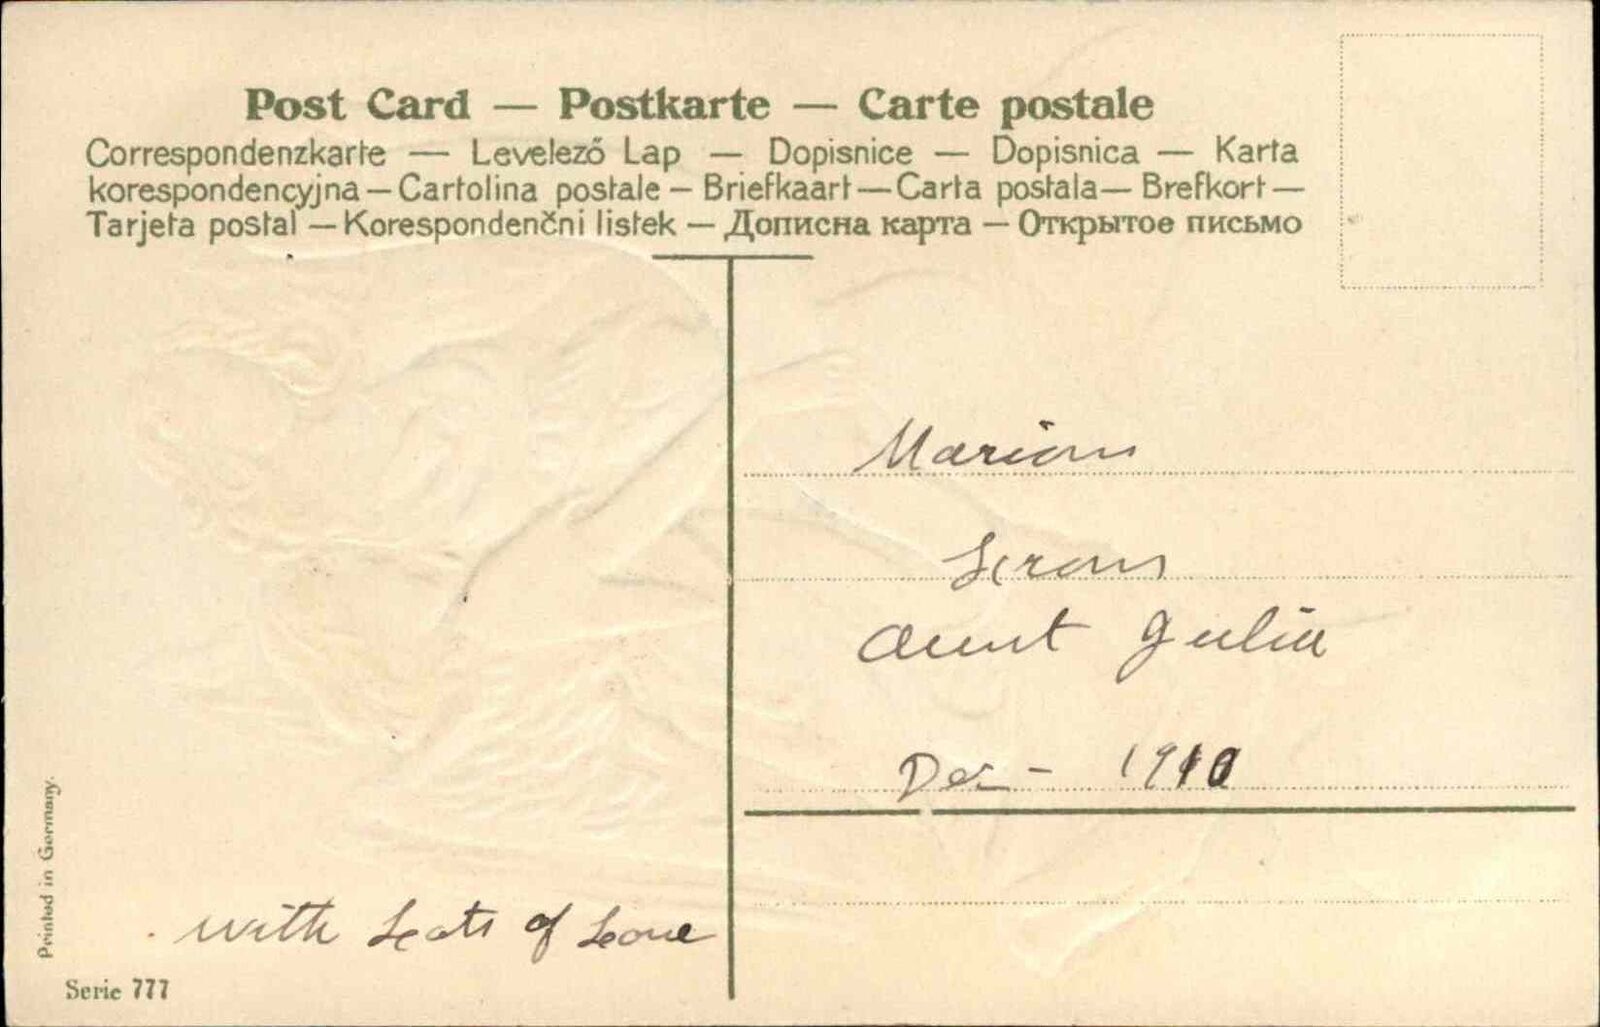 Post Card — Postkarte — Carte postale
Correspondenzkarte — Levelező Lap — Dopisnice — Dopisnica — Karta
korespondencyjna — Cartolina postale — Briefkaart — Carta postala — Brefkort —
Tarjeta postal — Korespondenčni listek — Дописна карта — Открытое письмо
Marion
from
Aunt Julia
Dec - 1910
with Lots of Love
Printed in Germany.
Serie 777